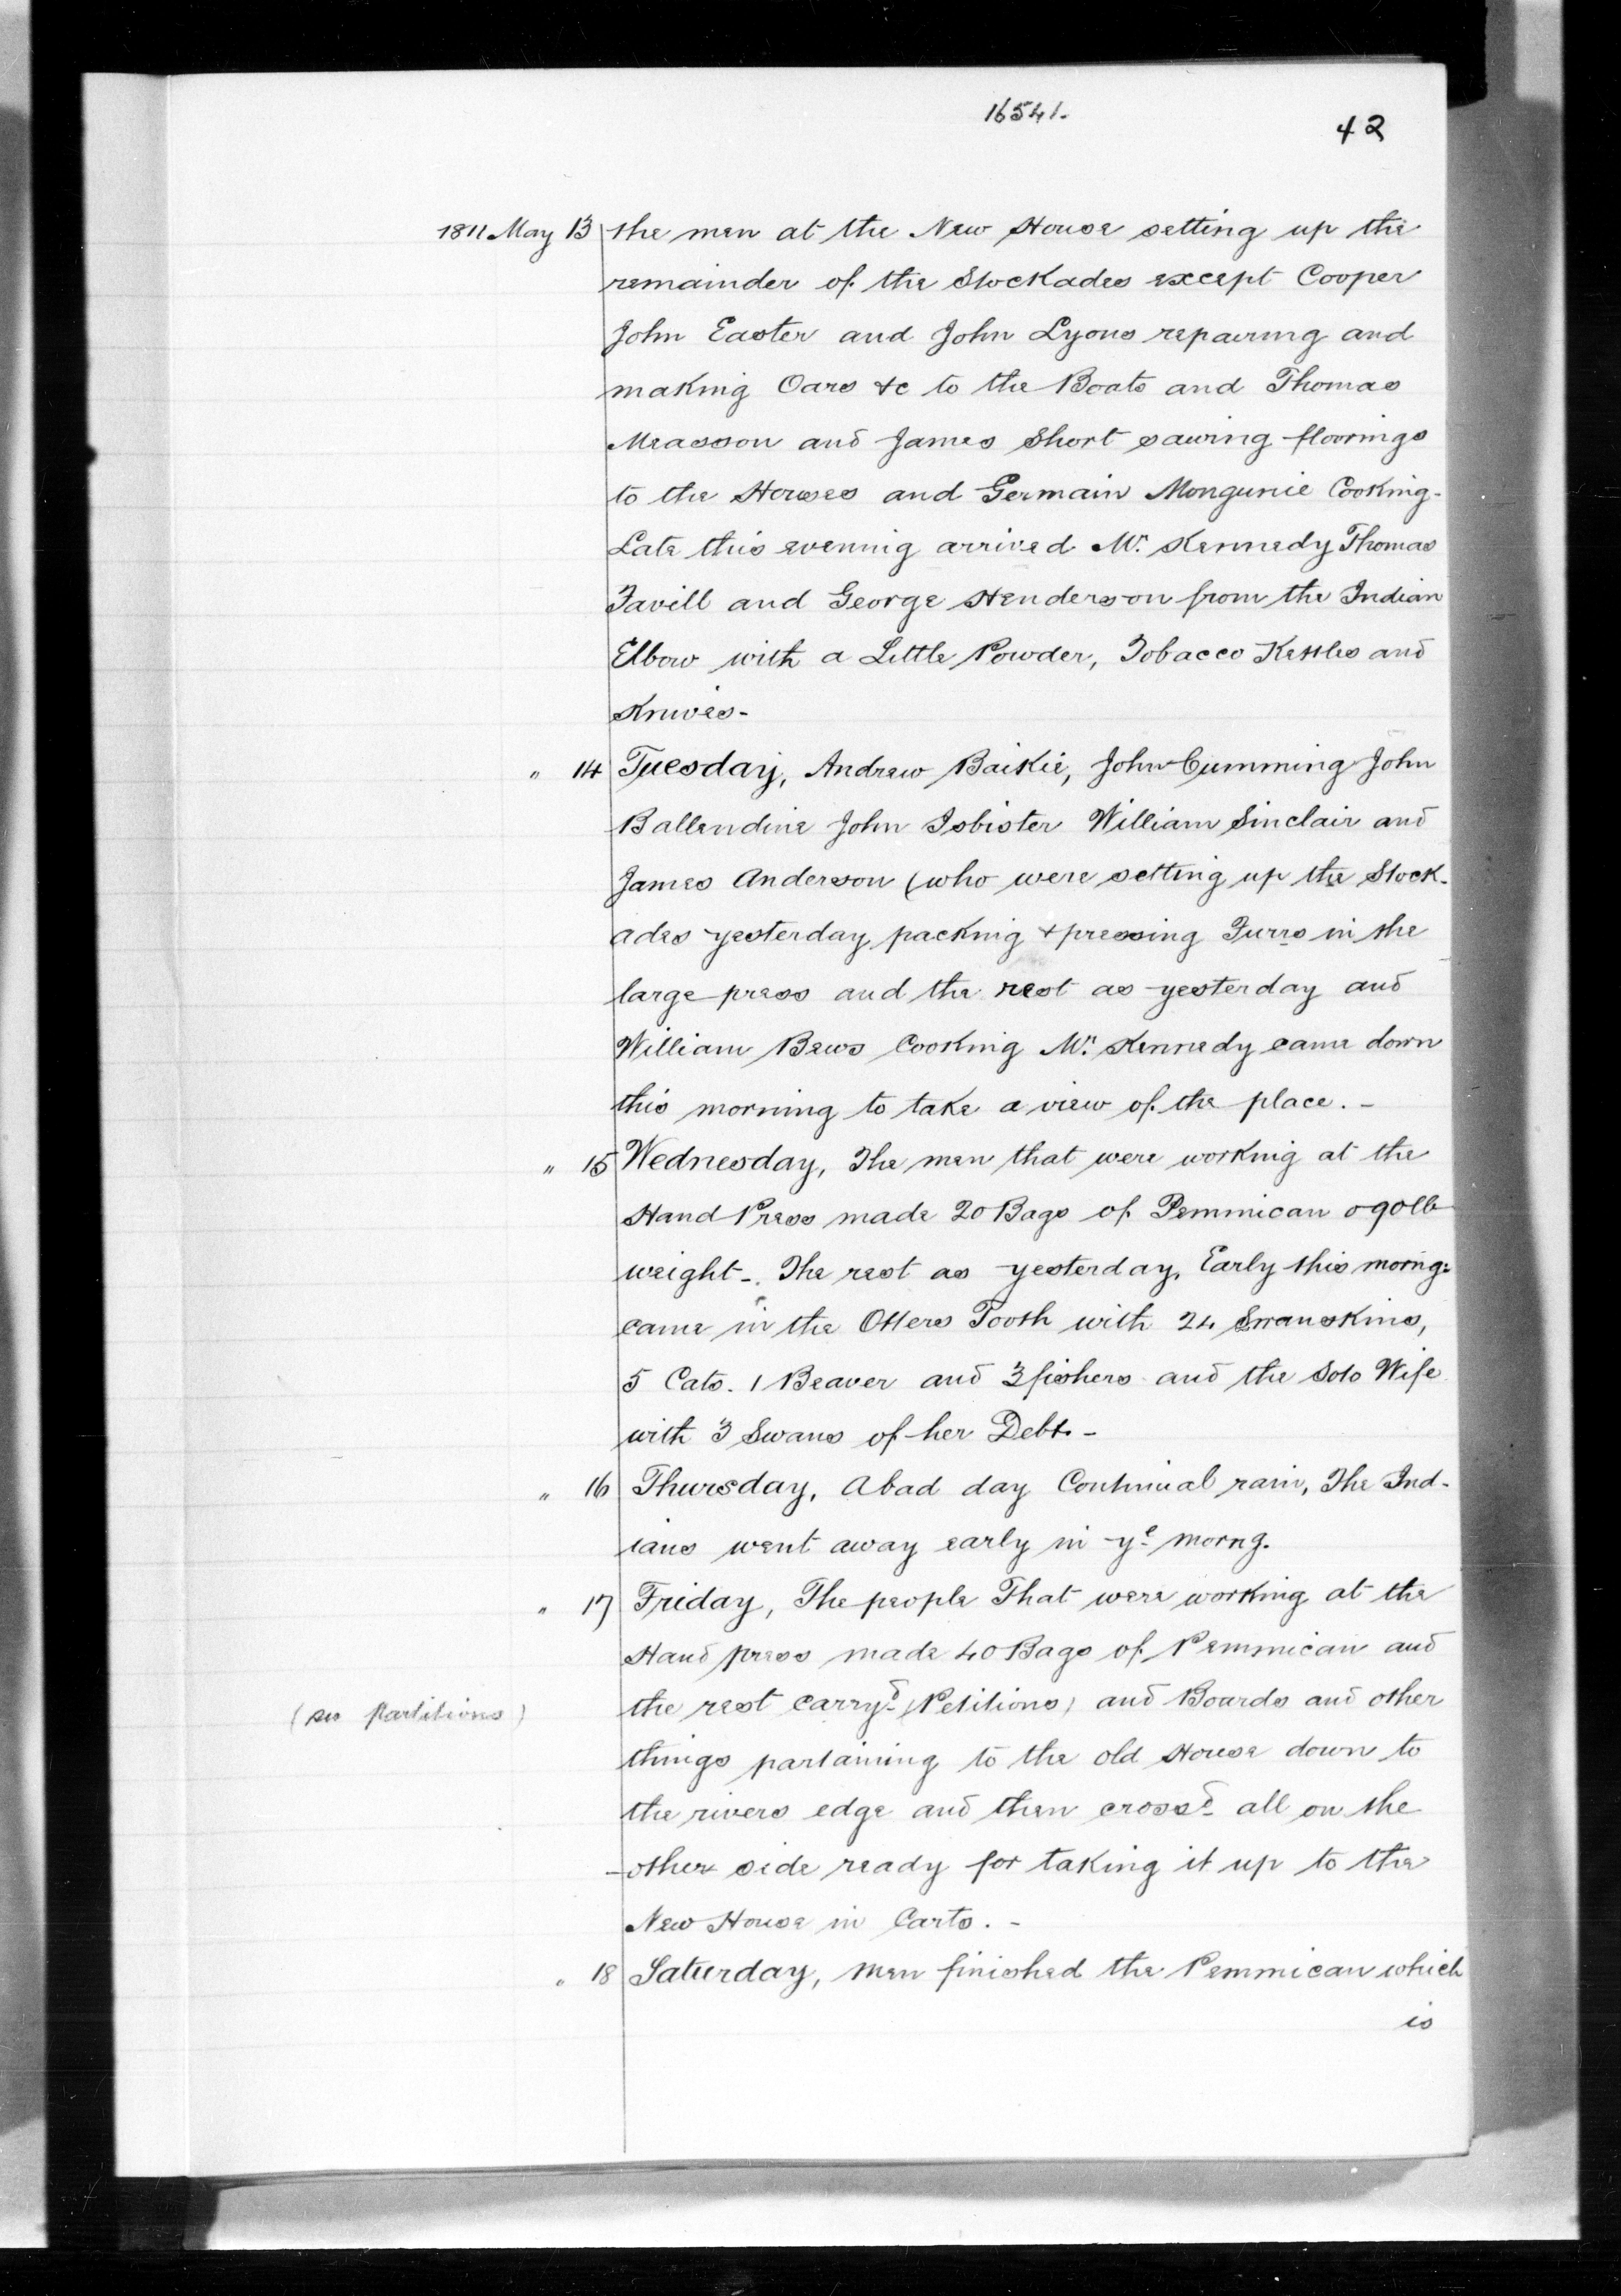 16541.
42
1811 May 13 the men at the New House setting up the
remainder of the Stockades except Cooper
John Easter and John Lyons repairing and
making Oars &c to the Boats and Thomas
Measson and James Short sawing floorings
to the Houses and Germain Mongunie Cooking-
Late this evening arrived Mr. Kennedy Thomas
Favill and George Henderson from the Indian
Elbow with a Little Powder, Tobacco Kettles and
Knives-
" 14 Tuesday, Andrew Baikie, John Cumming John
Ballendine John Isbister William Sinclair and
James Anderson (who were setting up the Stock-
ades yesterday packing & pressing Furrs in the
large press and the rest as yesterday and
William Bews Cooking Mr. Kennedy came down
this morning to take a view of the place.-
" 15 Wednesday, The men that were working at the
Hand Press made 20 Bags of Pemmican 90lb
weight-. The rest as yesterday, Early this morng:
came in the Otters Tooth with 24 Swanskins,
5 Cats. 1 Beaver and 3 fishers and the Soto Wife
with 3 Swans of her Debt.-
" 16 Thursday, A bad day Continual rain, The Ind-
ians went away early in ye morng.
" 17 Friday, The people That were working at the
Hand press made 40 Bags of Pemmican and
(sic partitions) the rest carryd (Petitions) and Boards and other
things partaining to the old House down to
the rivers edge and then crossd all on the
-other side ready for taking it up to the
New House in Carts.-
" 18 Saturday, men finished the Pemmican which
is